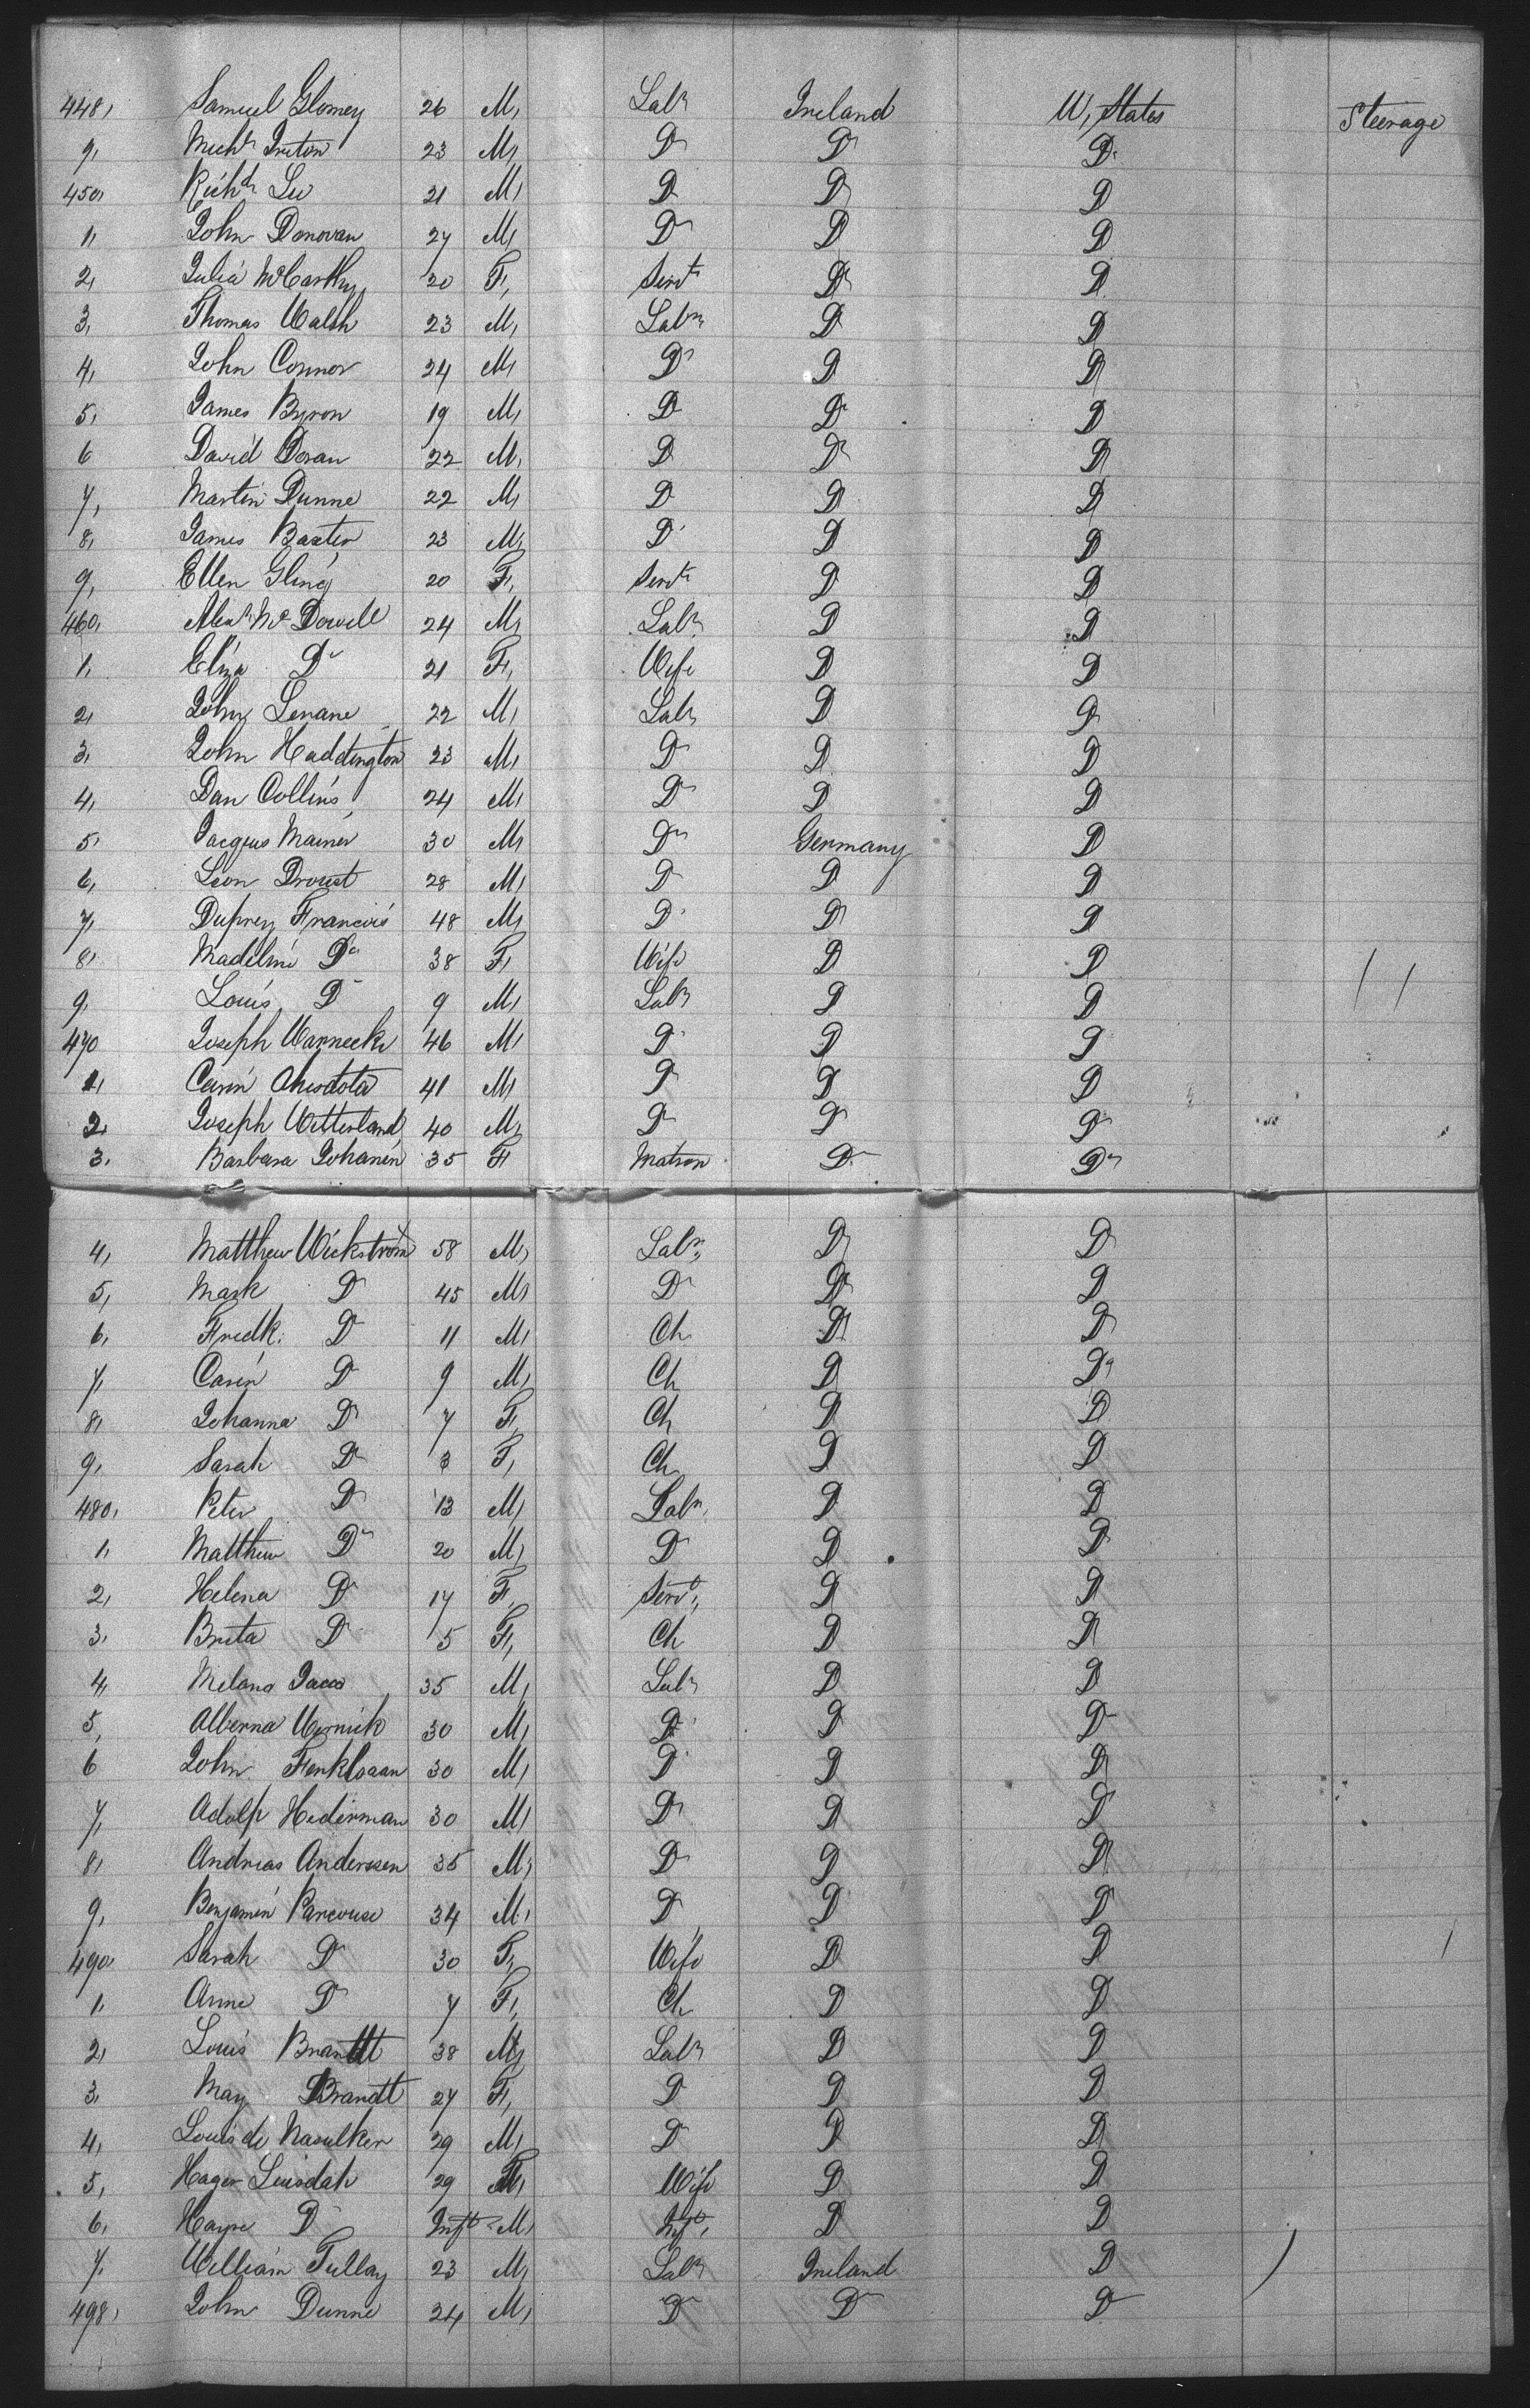 448, Samuel Glomey 26 M, Labr Ireland U, States Steerage
9, Michl Triton 23 M, Do Do Do
450, Richd Lee 21 M, Do Do Do
1, John Donovan 27 M, Do Do Do
2, Julia McCarthy 20 F, Servt Do Do
3, Thomas Walsh 23 M, Labr Do Do
4, John Connor 24 M, Do Do Do
5, James Byron 19 M, Do Do Do
6 David Doran 22 M, Do Do Do
7, Martin Dunne 22 M, Do Do Do
8, James Baxter 23 M, Do Do Do
9, Ellen Gling 20 F, Servt Do Do
460, Alexr McDowell 24 M, Labr Do Do
1, Eliza Do 21 F, Wife Do Do
2, John Lenane 22 M, Labr Do Do
3, John Haddington 23 M, Do Do Do
4, Dan Collins 24 M, Do Do Do
5, Jacques Mainer 30 M, Do Germany Do
6, Leon Droust 28 M, Do Do Do
7, Duprey Francois 48 M, Do Do Do
8, Madeline Do 38 F, Wife Do Do
9, Louis Do 9 M, Labr Do Do
470 Joseph Warnecke 46 M, Do Do Do
1, Carin 41 M, Do Do Do
2, Joseph Witterland 40 M, Do Do Do
3, Barbara Johanen 35 F Matron Do Do
4, Matthew Wickstrom 58 M, Labr, Do Do
5, Mark Do 45 M, Do Do Do
6, Fredk. Do 11 M, Ch Do Do
7, Carin Do 9 M, Ch Do Do
8, Johanna Do 7 F, Ch Do Do
9, Sarah Do 3 F, Ch Do Do
480, Peter Do 13 M, Labr, Do Do
1, Matthew Do 20 M, Do Do Do
2, Helena Do 17 F, Servt, Do Do
3, Brita Do 5 F, Ch Do Do
4, Melana Jacco 35 M, Labr Do Do
5, Alberna Wernick 30 M, Do Do Do
6 John 30 M, Do Do Do
7, Adolp Hederman 30 M, Do Do Do
8, Andreas Anderssen 35 M, Do Do Do
9, Benjamin Parcouse 34 M, Do Do Do
490 Sarah Do 30 F, Wife Do Do
1, Anne Do 7 F, Ch Do Do
2, Louis Brandt 38 M, Labr Do Do
3, May Brandt 27 F, Do Do Do
4, Louis de Nasulker 29 M, Do Do Do
5, Hager Leisdah 29 F, Wife Do Do
6, Hayse Do Inft M, Inft, Do Do
7, William Tullay 23 M, Labr Ireland Do
498, John Dunne 24 M, Do Do Do